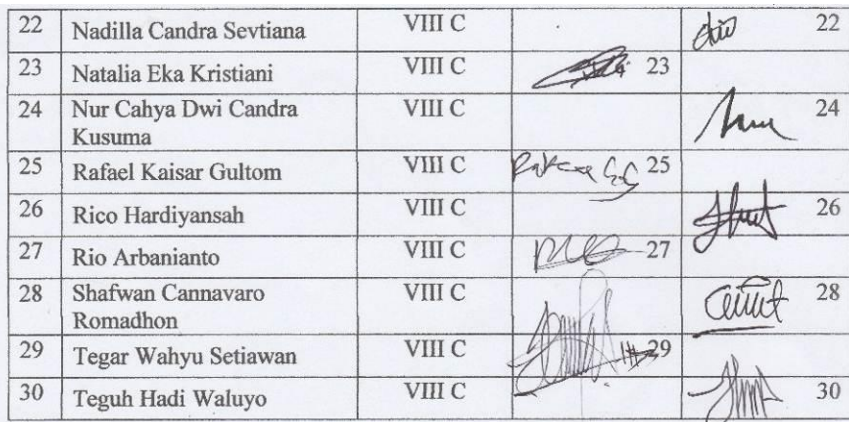 22 Nadilla Candra Sevtiana VIII C 22
23 Natalia Eka Kristiani VIII C 23
24 Nur Cahya Dwi Candra VIII C 24
Kusuma
25 Rafael Kaisar Gultom VIII C 25
26 Rico Hardiyansah VIII C 26
27 Rio Arbanianto VIII C 27
28 Shafwan Cannavaro VIII C 28
Romadhon
29 Tegar Wahyu Setiawan VIII C 29
30 Teguh Hadi Waluyo VIII C 30